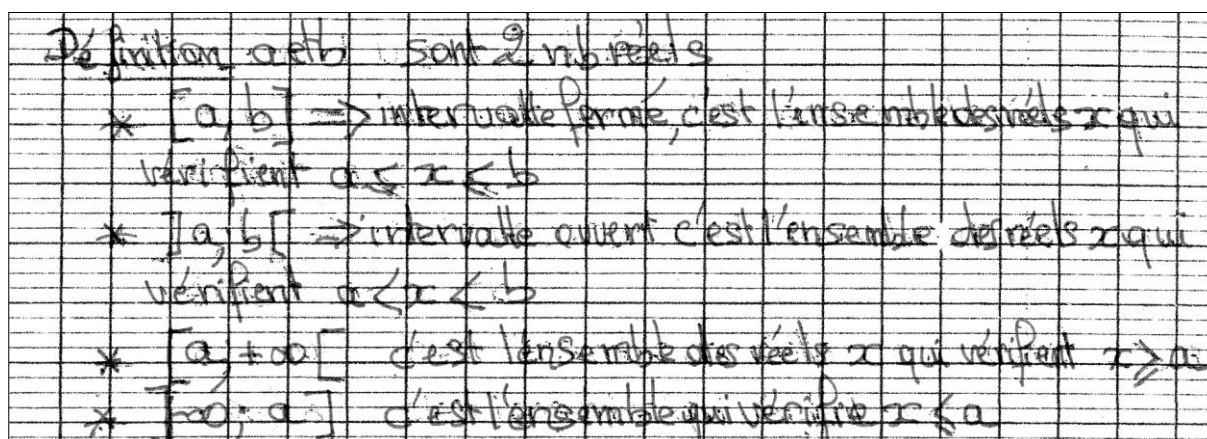 Définition a et b sont 2 nb réels
* [a; b] => intervalle fermé, c'est l'ensemble des réels x qui
vérifient a ⩽ x ⩽ b
* ]a; b[ => intervalle ouvert c'est l'ensemble des réels x qui
vérifient a < x < b
* [a; +∞[ c'est l'ensemble des réels x qui vérifient x ⩾ a
* ]-∞; a] c'est l'ensemble qui vérifie x ⩽ a